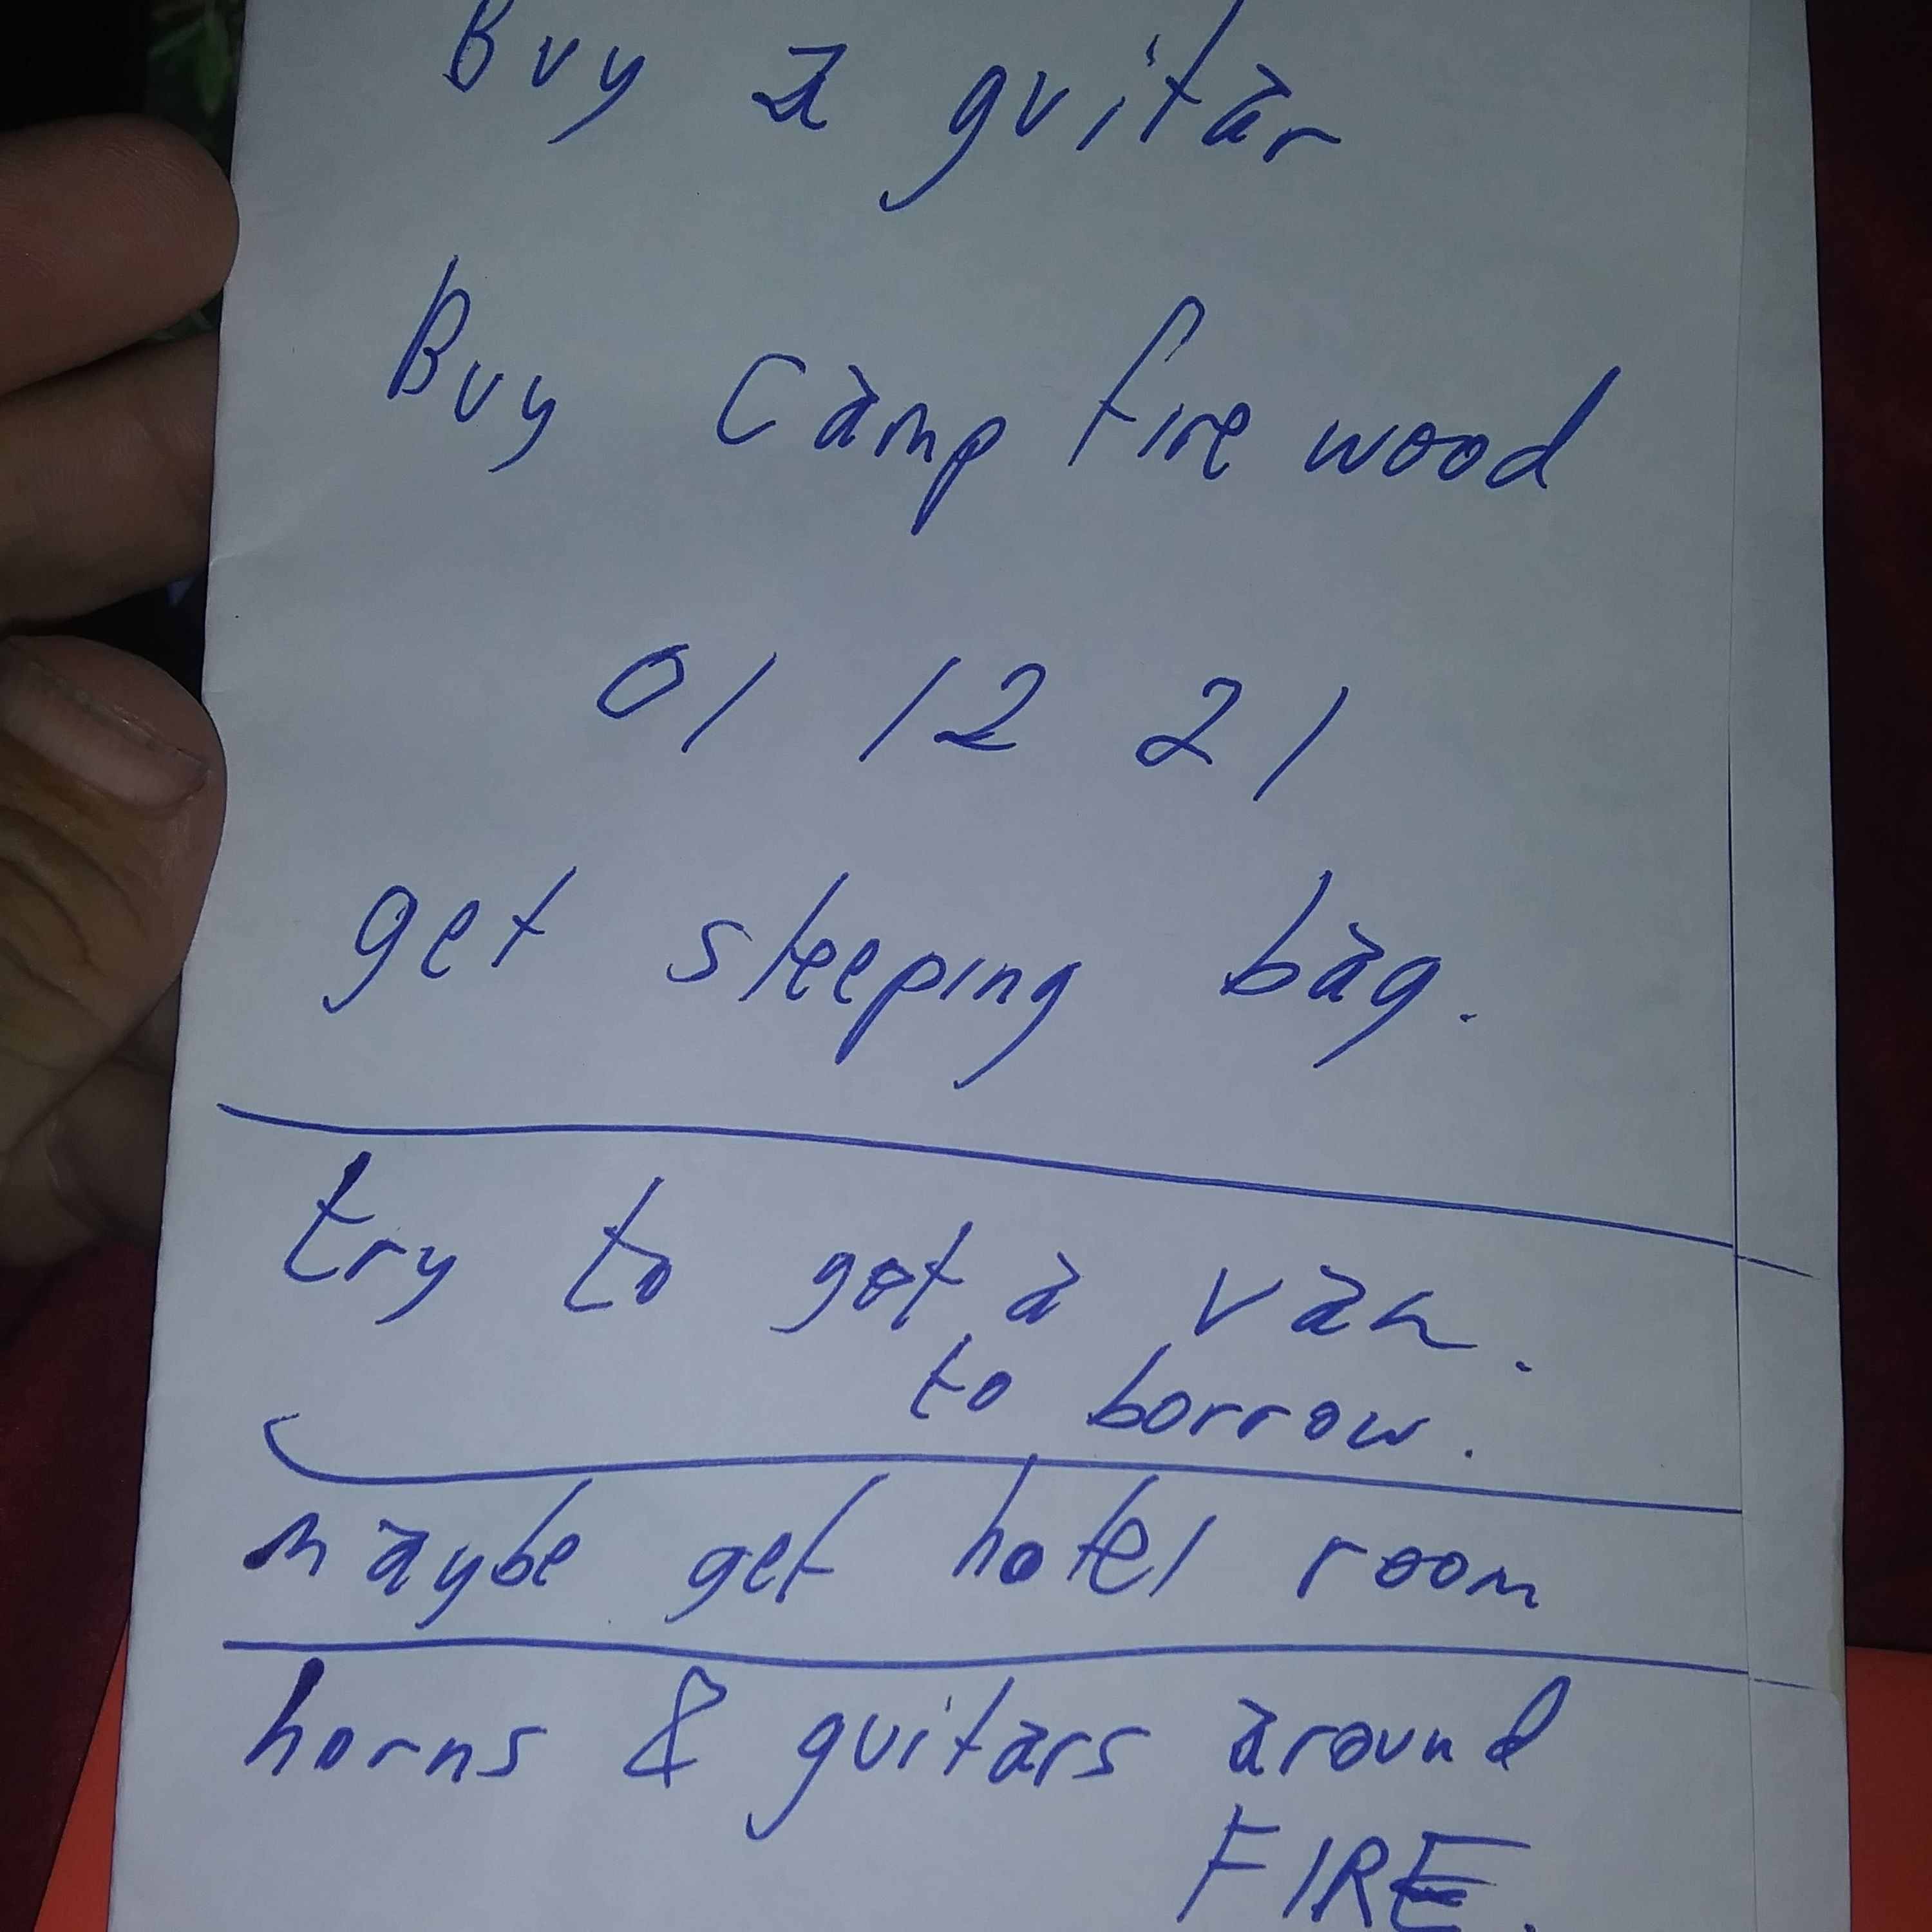 Buy a guitar
Buy Camp fire wood
01 12 21
get sleeping bag.
try to get a van.
to borrow.
maybe get hotel room
horns & guitars around
FIRE.